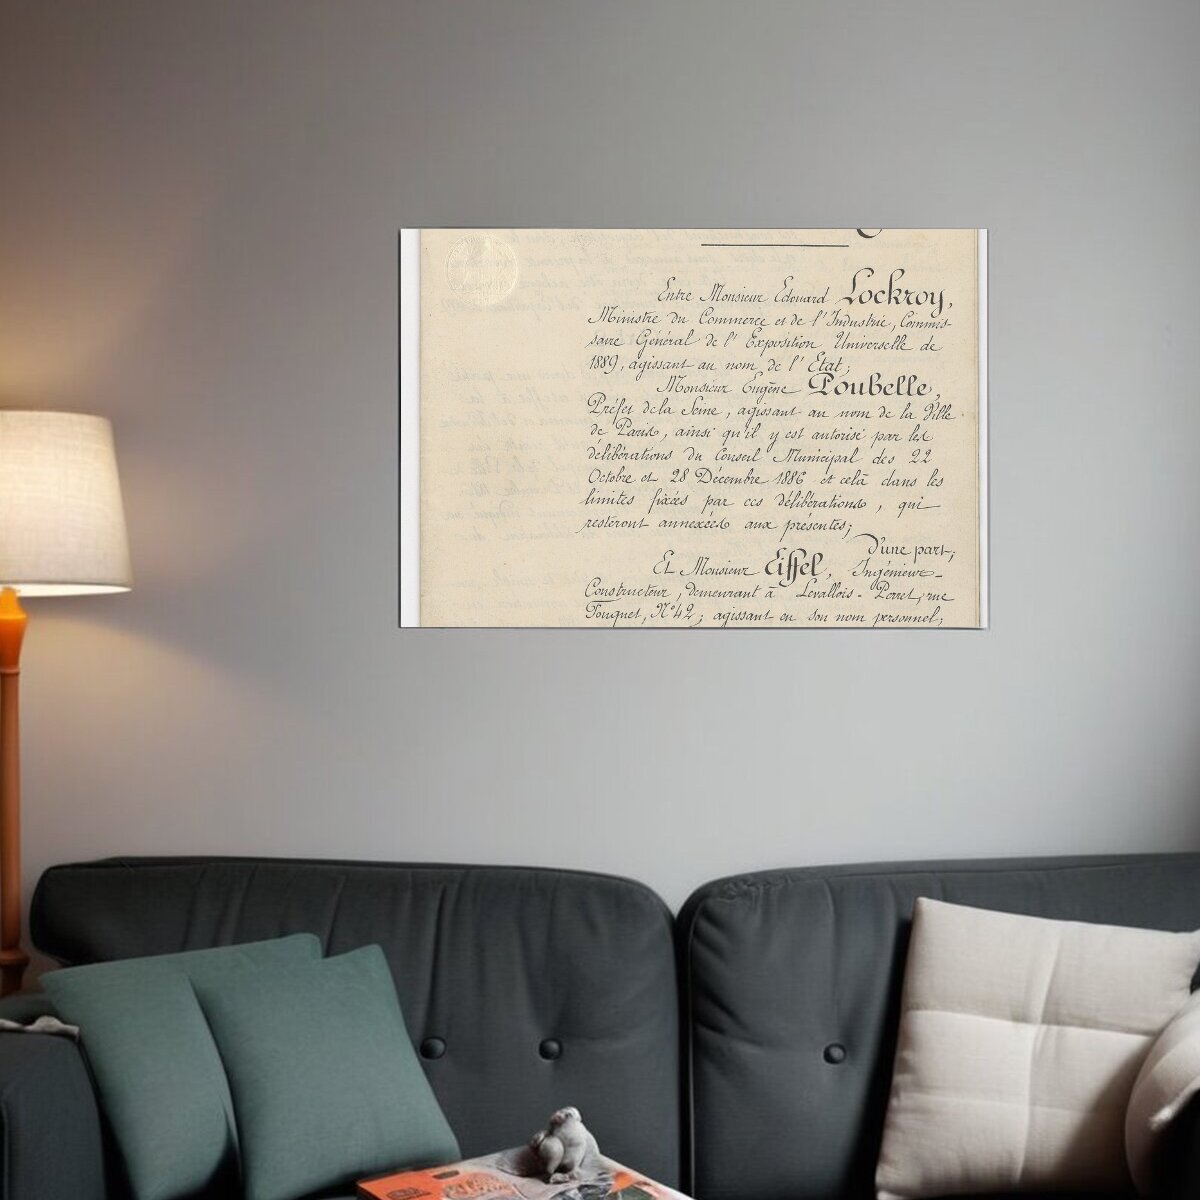 Entre Monsieur Edouard Lockroy,
Ministre du Commerce et de l'Industrie, Commis-
saire Général de l'Exposition Universelle de
1889, agissant au nom de l'Etat;
Monsieur Eugène Poubelle,
Préfet de la Seine, agissant au nom de la Ville
de Paris, ainsi qu'il y est autorisé par les
délibérations du Conseil Municipal des 22
Octobre et 28 Décembre 1886 et celà dans les
limites fixées par ces délibérations, qui
resteront annexées aux présentes;
d'une part;
Et Monsieur Eiffel, Ingénieur-
Constructeur, demeurant à Levallois-Perret, rue
Fouquet, N° 42; agissant en son nom personnel;